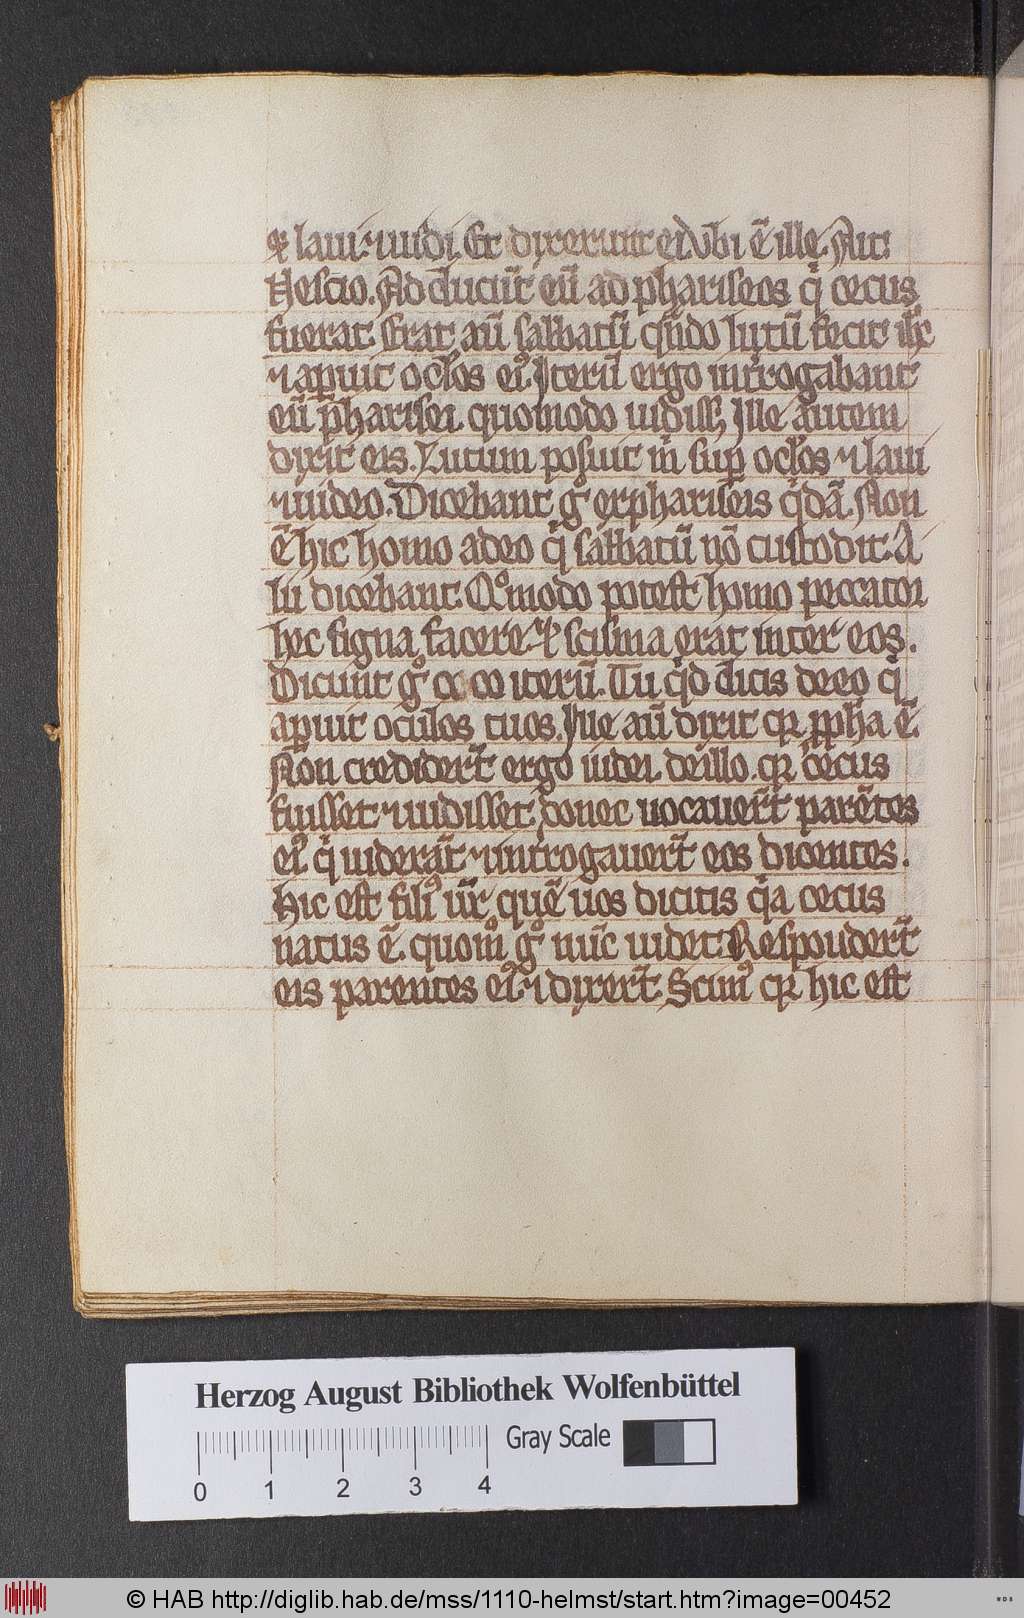 ⁊ laui ⁊ uidi. Et dixerunt ei Vbi ē ille. Ait
Nescio. Adducūt eū ad phariseos q̇ cecus
fuerat. Erat aū sabbatū qn̄do lutū fecit ih̄c
⁊ apuit oclos eiꝰ. Iterū ergo introgabant
eū pharisei. quomodo uidiss; Ille autem
dixit eis. Lutum posuit m̄ sup oclos ⁊ laui
⁊ uideo. Dicebant g̊ ex phariseis q̇dā. Non
ē hic homo a deo q̇ sabbatū nō custodit. A
lii dicebant. Qͦmodo potest homo peccator
hec signa facere. ⁊ scisma erat inter eos.
Dicunt g̊ ceco iterū. Tu q̇d dicis de eo q̇
apuit oculos tuos. Ille aū dixit qꝛ ꝓpha ē.
Non credidert̄ ergo iudei. de illo. qꝛ cecus
fuisset ⁊ uidisset. donec uocauert̄ parētes
eiꝰ q̇ uiderāt ⁊ introgauert̄ eos dicentes.
Hic est filiꝰ ur̄ quē uos dicitis q̇a cecus
natus ē. quomͦ g̊ nūc uidet. Responder̄t
eis parentes eiꝰ ⁊ dixert̄. Scimꝰ qꝛ hic est
Herzog August Bibliothek Wolfenbüttel
Gray Scale
0 1 2 3 4
© HAB http://diglib.hab.de/mss/1110-helmst/start.htm?image=00452